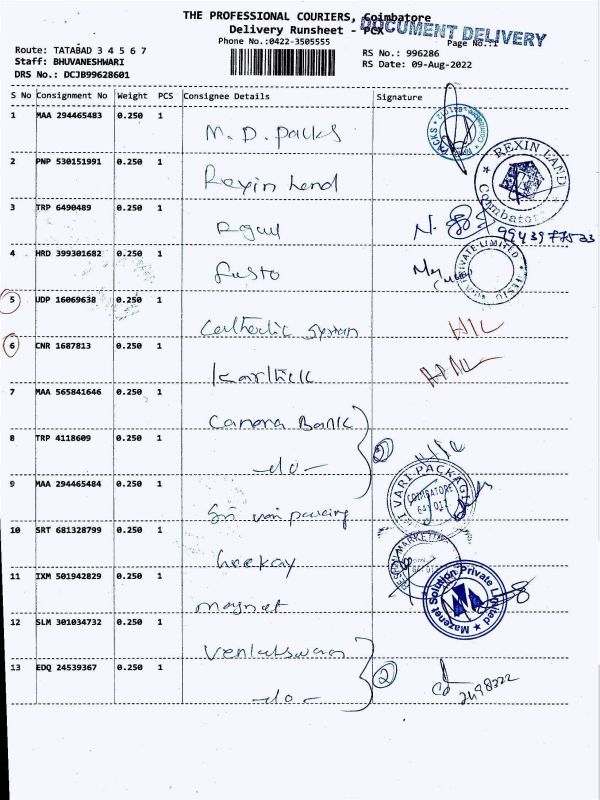 THE PROFESSIONAL COURIERS, Coimbatore
Delivery Runsheet - PCX
DOCUMENT DELIVERY
Phone No.:0422-3505555
Page No.:1
Route: TATABAD 3 4 5 6 7
Staff: BHUVANESHWARI
DRS No.: DCJB99628601
RS No.: 996286
RS Date: 09-Aug-2022
S No Consignment No Weight PCS Consignee Details Signature
1 MAA 294465483 0.250 1 M. D. Packs
2 PNP 530151991 0.250 1 Rexin Land
REXIN LAND
Coimbatore
3 TRP 6490489 0.250 1
9943977533
4 HRD 399301682 0.250 1 Festo
PRIVATE LIMITED
5 UDP 16069638 0.250 1 Catholic Syrian
6 CNR 1687813 0.250 1 Karthick
7 MAA 565841646 0.250 1 Canara Bank
8 TRP 4118609 0.250 1 -do- 2
9 MAA 294465484 0.250 1 Sri vari packing
VARI PACKAGING
COIMBATORE
641 027
10 SRT 681328799 0.250 1 Geekay
11 IXM 501942829 0.250 1 Maznet
Mazenet Solution Private Limited
12 SLM 301034732 0.250 1
13 EDQ 24539367 0.250 1 -do- 2
2498322